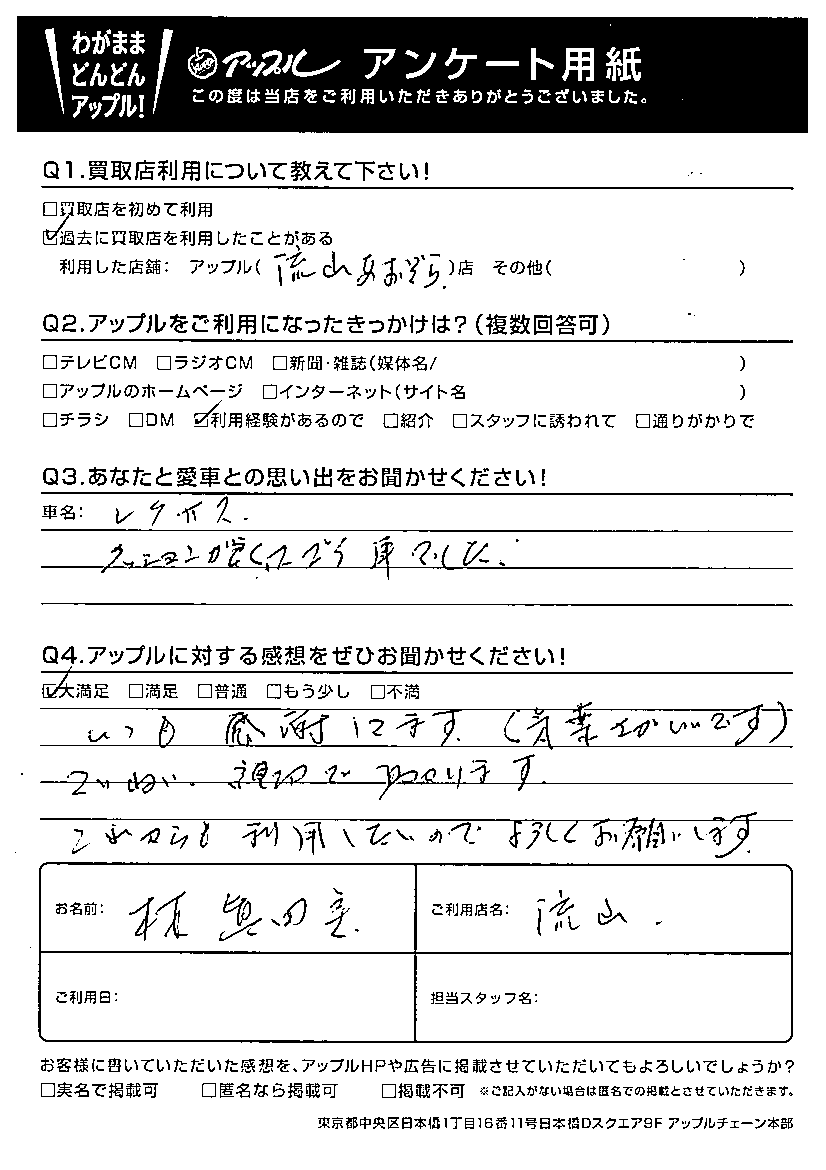 わがまま
どんどん
アップル!
アップル アンケート用紙
この度は当店をご利用いただきありがとうございました。
Q1.買取店利用について教えて下さい!
□買取店を初めて利用
☑過去に買取店を利用したことがある
利用した店舗: アップル(流山あおぞら)店 その他( )
Q2.アップルをご利用になったきっかけは?(複数回答可)
□テレビCM □ラジオCM □新聞・雑誌(媒体名/ )
□アップルのホームページ □インターネット(サイト名 )
□チラシ □DM ☑利用経験があるので □紹介 □スタッフに誘われて □通りがかりで
Q3.あなたと愛車との思い出をお聞かせください!
車名: レクサス.
クッションが良くてごう車でした.
Q4.アップルに対する感想をぜひお聞かせください!
☑大満足 □満足 □普通 □もう少し □不満
いつも 感謝してます.(営業さんがいいです)
ていねい. 親切で 助かります.
これからも 利用したいので よろしくお願いします
お名前:
ご利用店名: 流山.
ご利用日:
担当スタッフ名:
お客様に書いていただいた感想を、アップルHPや広告に掲載させていただいてもよろしいでしょうか?
□実名で掲載可 □匿名なら掲載可 □掲載不可 ※ご記入がない場合は匿名での掲載とさせていただきます。
東京都中央区日本橋1丁目16番11号日本橋Dスクエア9F アップルチェーン本部